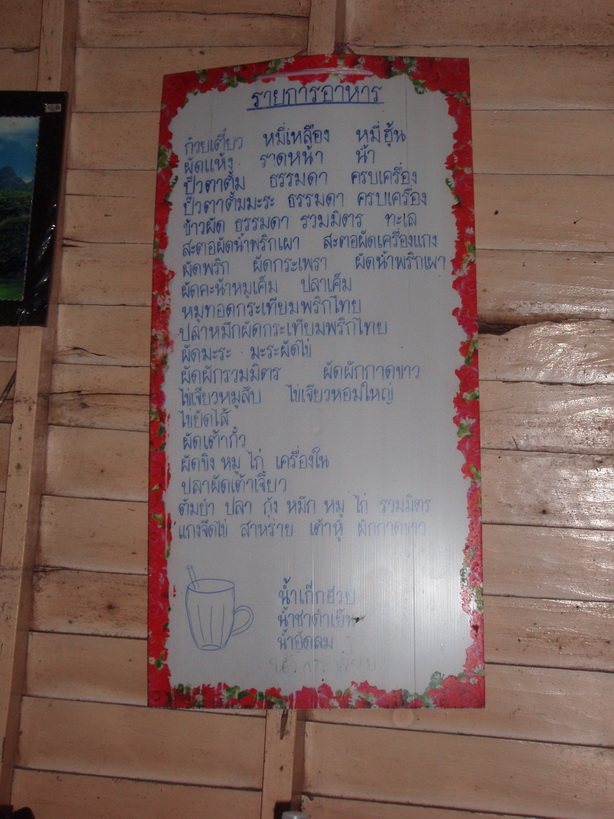 รายการอาหาร
ก๋วยเตี๋ยว หมี่เหลือง หมี่ฮุ้น
ผัดแห้ง ราดหน้า น้ำ
ข้าวต้ม ธรรมดา ครบเครื่อง
ข้าวต้มมะระ ธรรมดา ครบเครื่อง
ข้าวผัด ธรรมดา รวมมิตร ทะเล
สะตอผัดน้ำพริกเผา สะตอผัดเครื่องแกง
ผัดพริก ผัดกระเพรา ผัดน้ำพริกเผา
ผัดคะน้าหมูเค็ม ปลาเค็ม
หมูทอดกระเทียมพริกไทย
ปลาหมึกผัดกระเทียมพริกไทย
ผัดมะระ มะระผัดไข่
ผัดผักรวมมิตร ผัดผักกาดขาว
ไข่เจียวหมูสับ ไข่เจียวหอมใหญ่
ไข่ยัดไส้
ผัดเต้าคั่ว
ผัดขิง หมู ไก่ เครื่องใน
ปลาผัดเต้าเจี้ยว
ต้มยำ ปลา กุ้ง หมึก หมู ไก่ รวมมิตร
แกงจืดไข่ สาหร่าย เต้าหู้ ผักกาดขาว
น้ำเก็กฮวย
น้ำชาดำเย็น
น้ำอัดลม